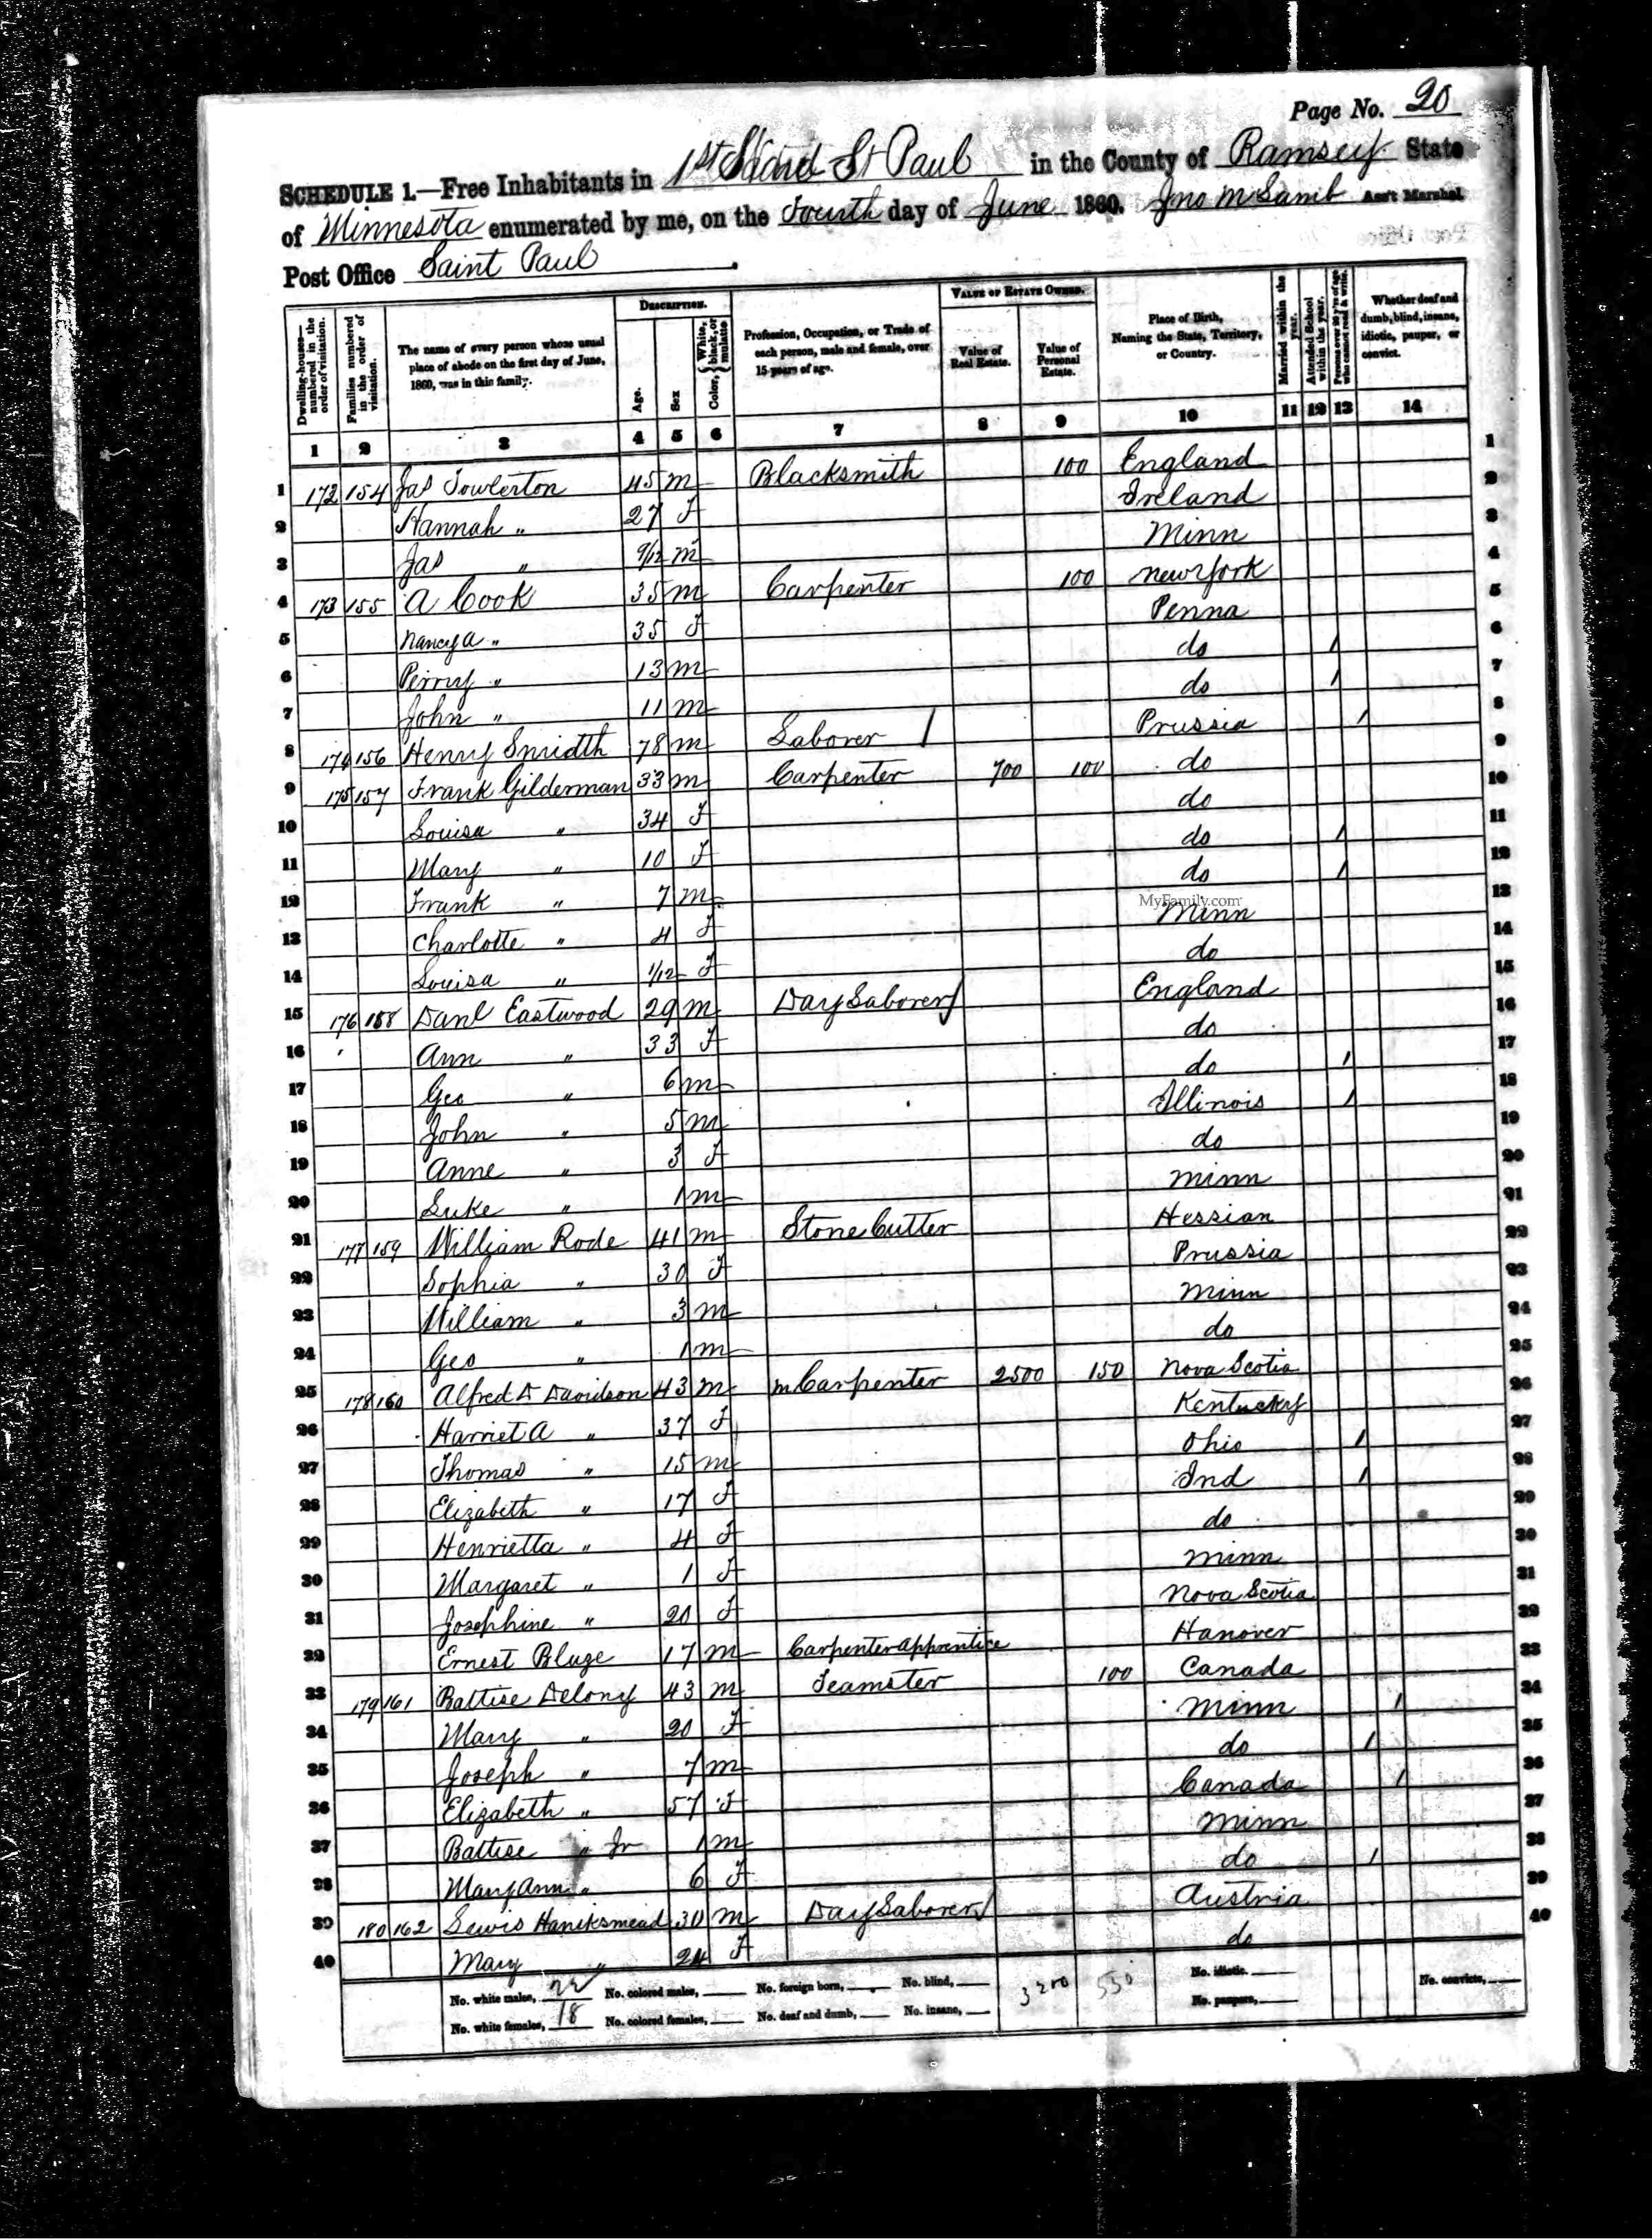 Page No. 20
SCHEDULE 1.—Free Inhabitants in 1st Ward St Paul in the County of Ramsey State
of Minnesota enumerated by me, on the Fourth day of June 1860. Jno M Lamb Ass't Marshal
Post Office Saint Paul.
Dwelling-houses—numbered in the order of visitation.
Families numbered in the order of visitation.
The name of every person whose usual place of abode on the first day of June, 1860, was in this family.
DESCRIPTION.
Age.
Sex
Color, {White, black, or mulatto
Profession, Occupation, or Trade of each person, male and female, over 15 years of age.
VALUE OF ESTATE OWNED.
Value of Real Estate.
Value of Personal Estate.
Place of Birth, Naming the State, Territory, or Country.
Married within the year.
Attended School within the year.
Persons over 20 y'rs of age who cannot read & write.
Whether deaf and dumb, blind, insane, idiotic, pauper, or convict.
1 2 3 4 5 6 7 8 9 10 11 12 13 14
1 172 154 Jas Fowlerton 45 m Blacksmith 100 England 1
2 Hannah " 27 F Ireland 2
3 Jas " 9/12 m Minn 3
4 173 155 A Cook 35 m Carpenter 100 New York 4
5 Nancy A " 35 F Penna 5
6 Perry " 13 m do / 6
7 John " 11 m do / 7
8 174 156 Henry Smidth 78 m Laborer / Prussia / 8
9 175 157 Frank Gilderman 33 m Carpenter 700 100 do 9
10 Louisa " 34 F do 10
11 Mary " 10 F do / 11
12 Frank " 7 m do / 12
MyFamily.com
13 Charlotte " 4 F Minn 13
14 Louisa " 1/12 F do 14
15 176 158 Danl Eastwood 29 m Day Laborer / England 15
16 Ann " 33 F do 16
17 Geo " 6 m do / 17
18 John " 5 m Illinois / 18
19 Anne " 3 F do 19
20 Luke " 1 m Minn 20
21 177 159 William Rode 41 m Stone Cutter Hessian 21
22 Sophia " 30 F Prussia 22
23 William " 3 m Minn 23
24 Geo " 1 m do 24
25 178 160 Alfred D Davidson 43 m m Carpenter 2500 150 Nova Scotia 25
26 Harriet A " 37 F Kentucky 26
27 Thomas " 15 m Ohio / 27
28 Elizabeth " 17 F Ind / 28
29 Henrietta " 4 F do 29
30 Margaret " 1 F Minn 30
31 Josephine " 20 F Nova Scotia 31
32 Ernest Bluge 17 m Carpenter apprentice Hanover 32
33 179 161 Battise Delony 43 m Teamster 100 Canada 33
34 Mary " 20 F Minn / 34
35 Joseph " 7 m do / 35
36 Elizabeth " 57 F Canada / 36
37 Battise " Jr 1 m Minn 37
38 Mary Ann " 6 F do / 38
39 180 162 Lewis Haniksmead 30 m Day Laborer / Austria 39
40 Mary " 24 F do 40
No. white males, 22 No. colored males, No. foreign born, No. blind, 3200 550 No. idiotic. No. convicts,
No. white females, 18 No. colored females, No. deaf and dumb, No. insane, No. paupers,